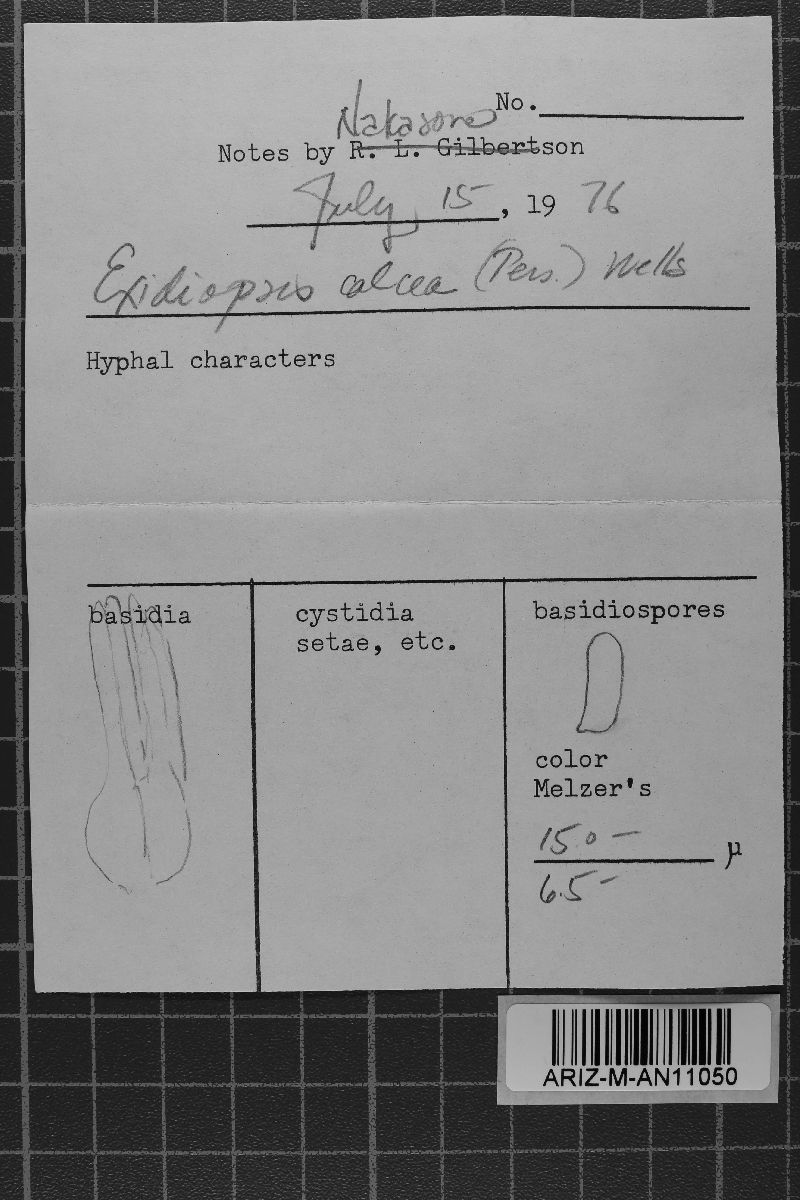 No.
Nakasone
Notes by R. L. Gilbertson
July 15, 1976
Exidiopsis calcea (Pers.) Wells
Hyphal characters
basidia
cystidia
setae, etc.
basidiospores
color
Melzer's
15.0 – µ
6.5 –
ARIZ-M-AN11050